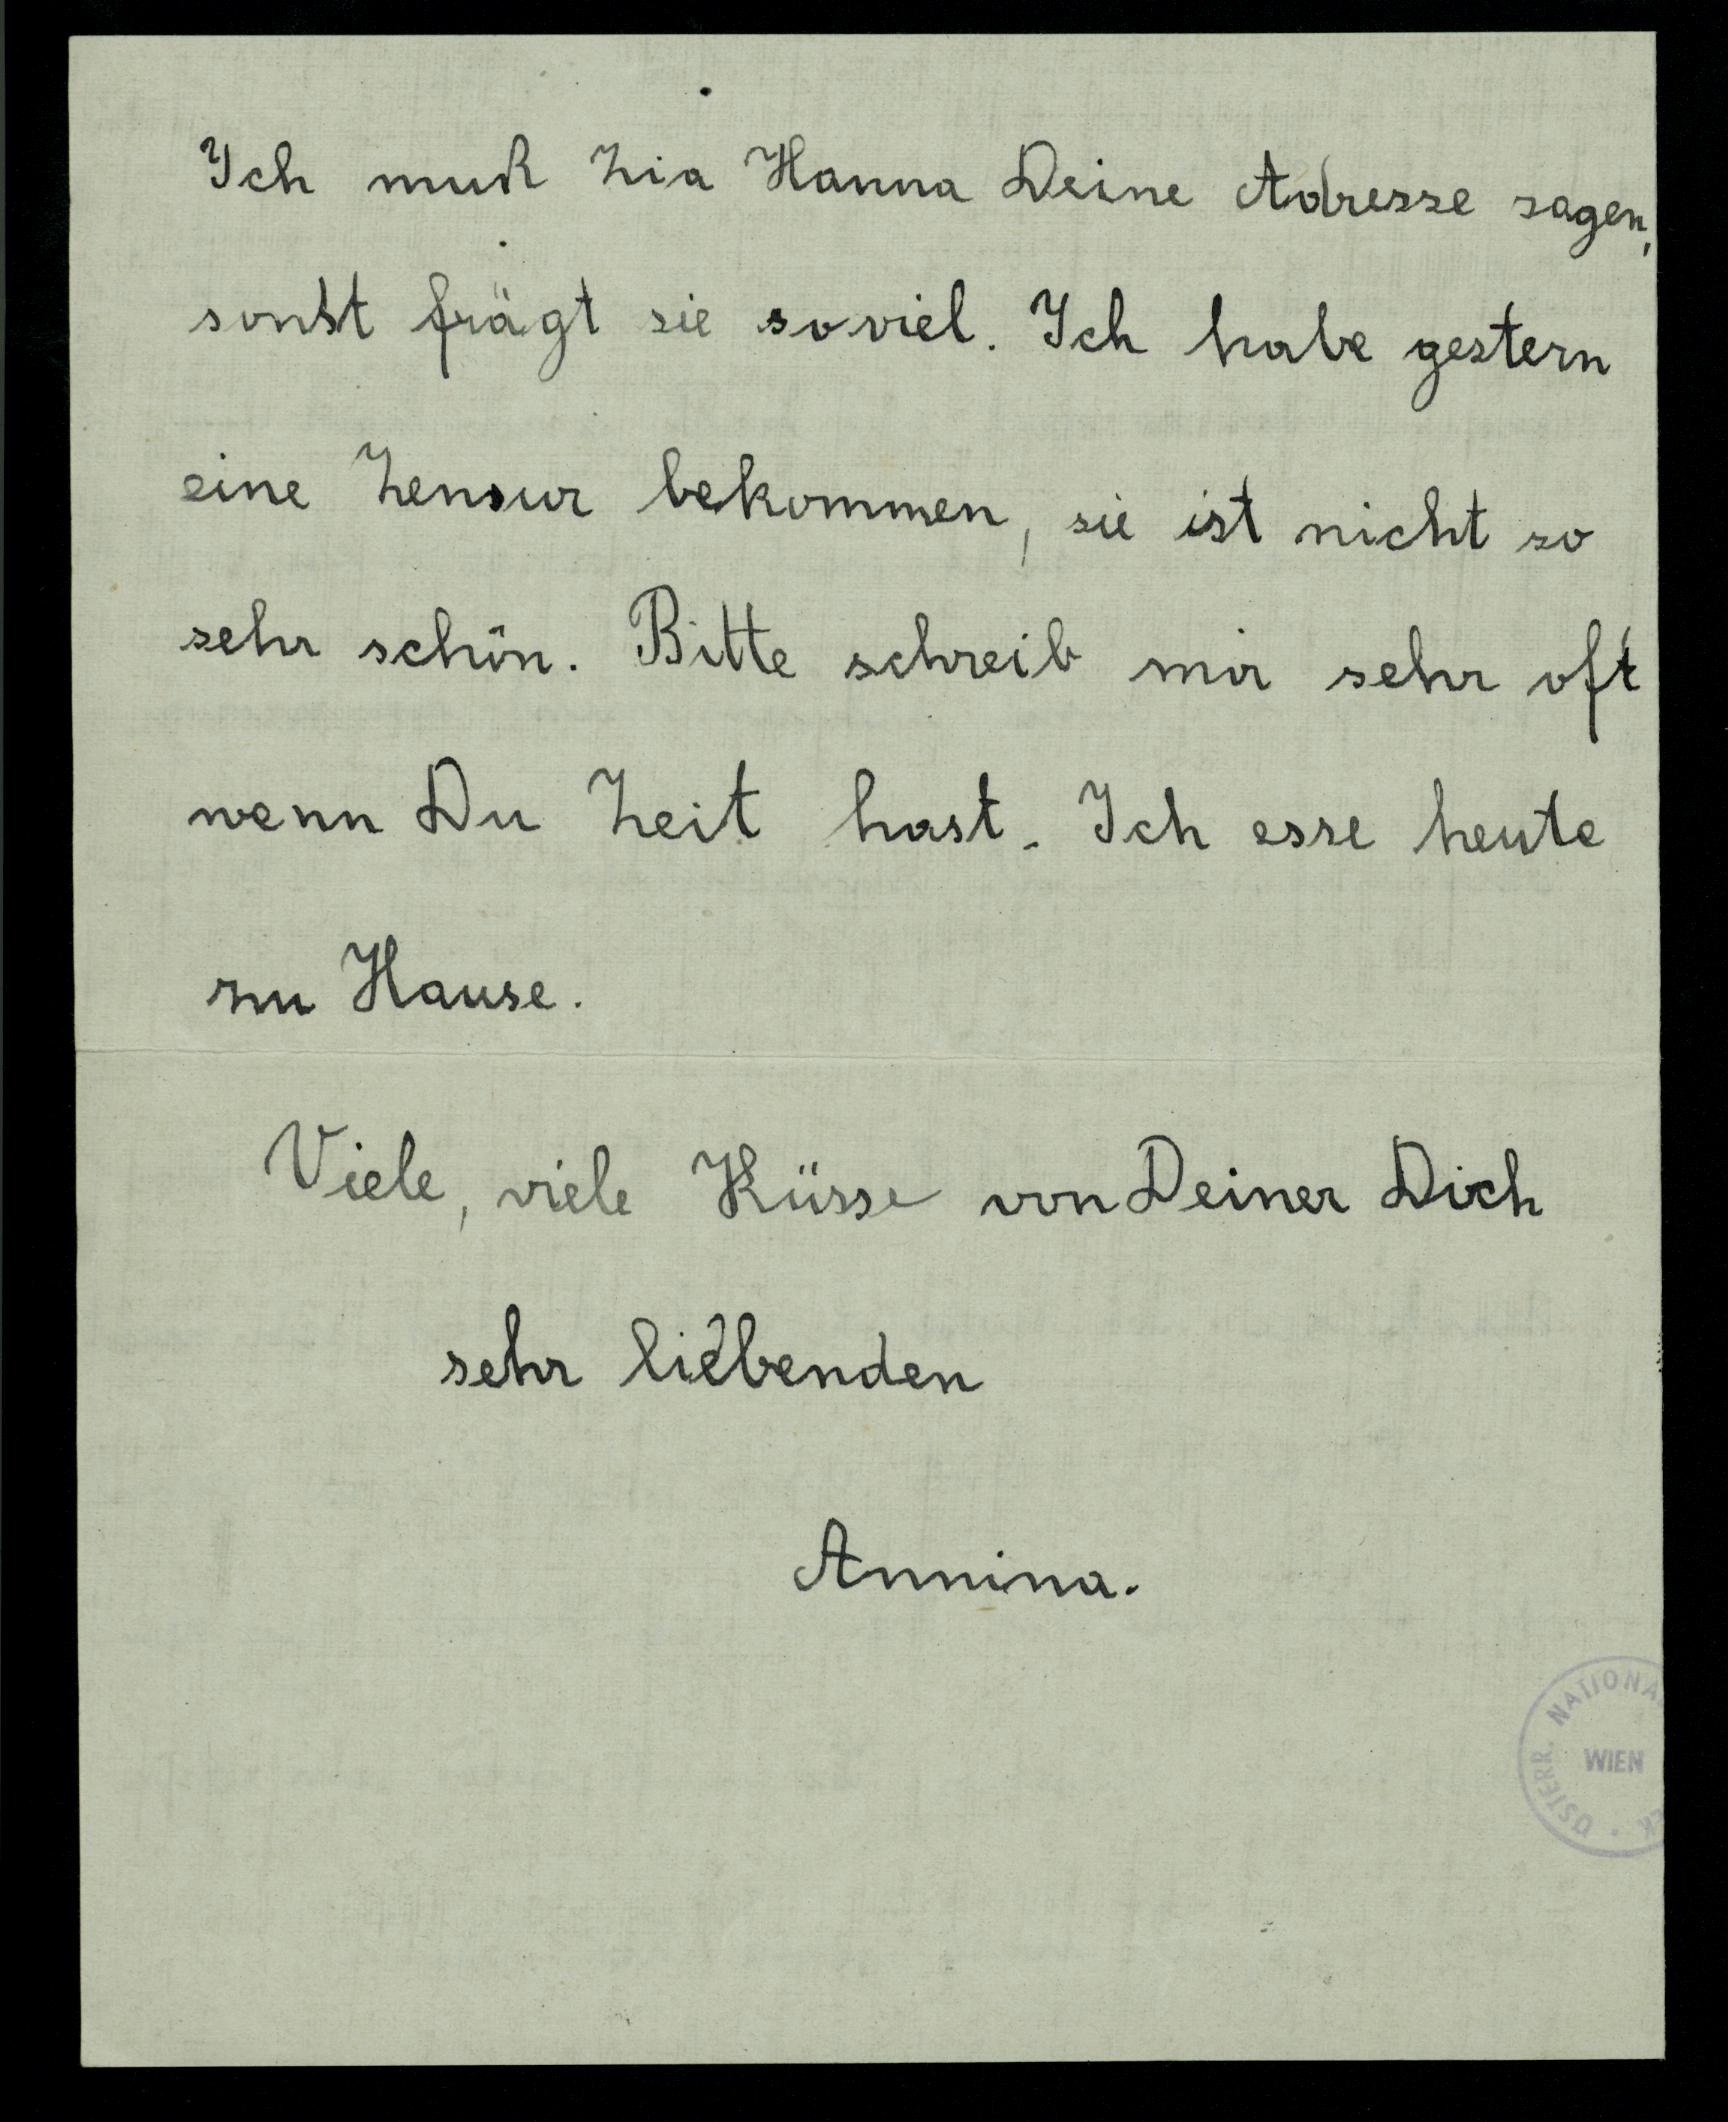 Ich muß Zia Hanna Deine Adresse sagen,
sonst frägt sie soviel. Ich habe gestern
eine Zensur bekommen, sie ist nicht so
sehr schön. Bitte schreib mir sehr oft
wenn Du Zeit hast. Ich esse heute
zu Hause.
Viele, viele Küsse von Deiner Dich
sehr liebenden
Annina.
ÖSTERR. NATIONA
WIEN
EK